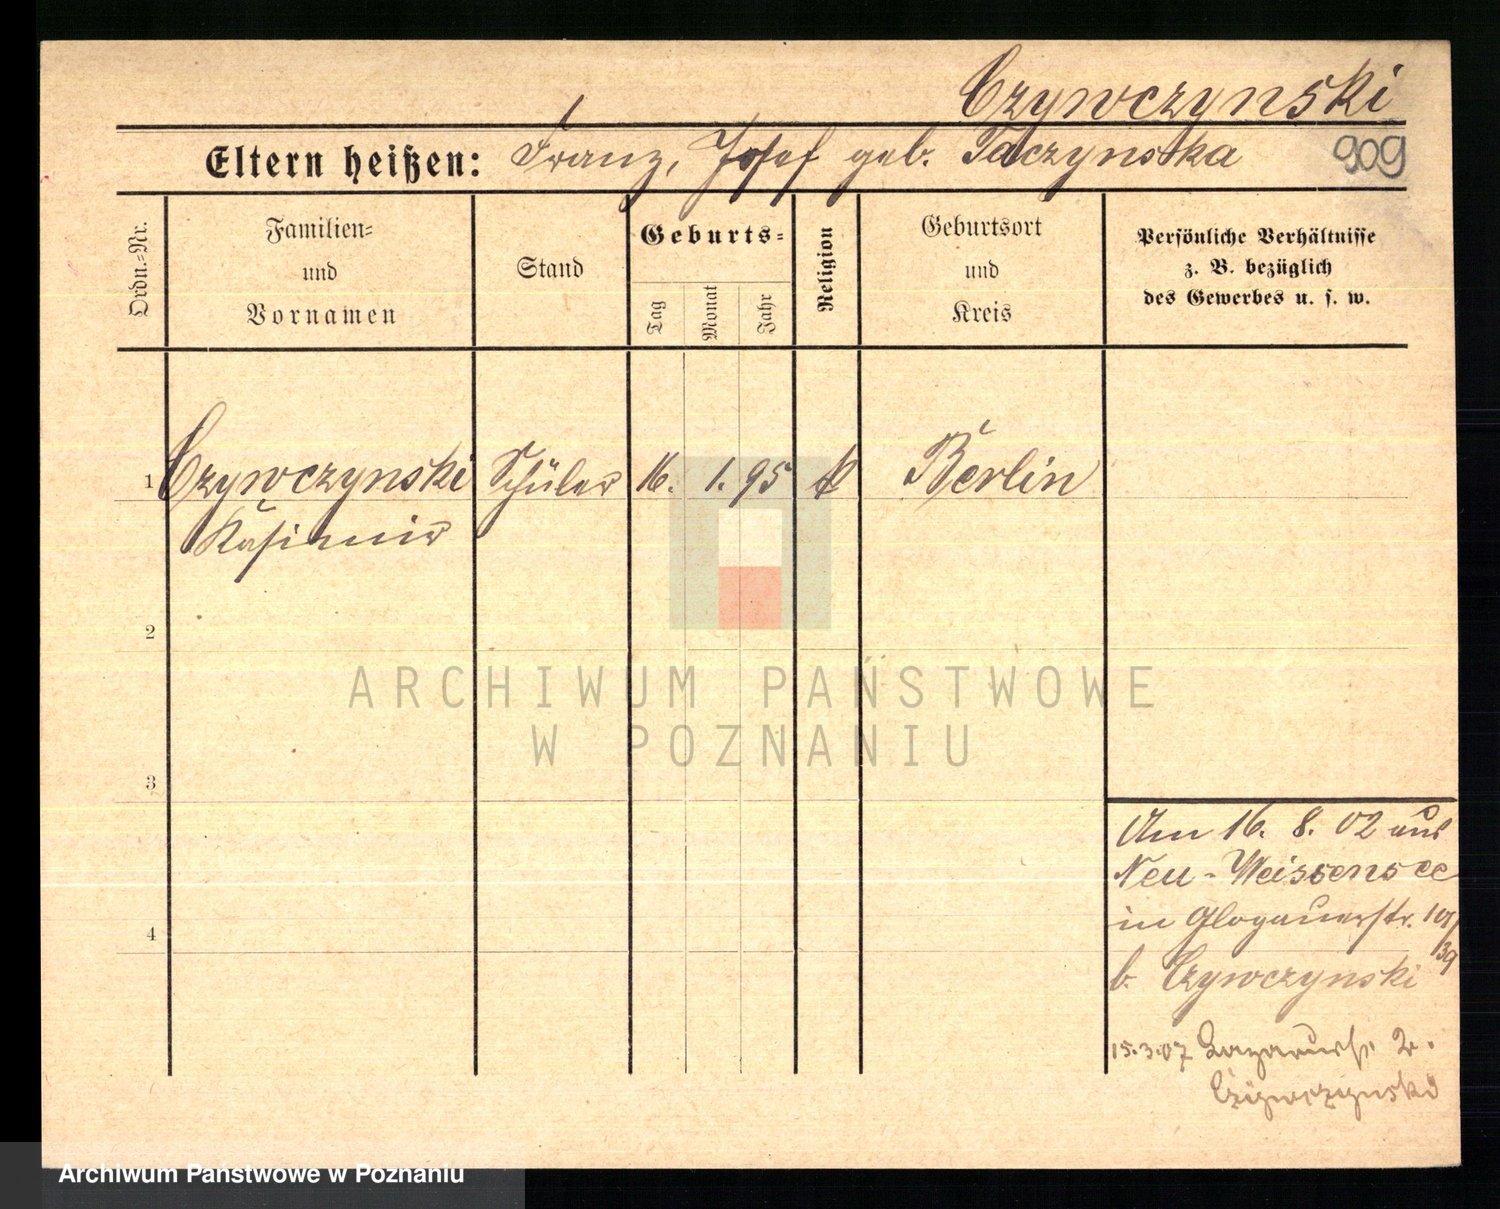 Czywczynski
Eltern heißen: Franz, Josef geb. Taczynska 909
Ordn.-Nr.
Familien-
und
Vornamen
Stand
Geburts-
Tag
Monat
Jahr
Religion
Geburtsort
und
Kreis
Persönliche Verhältnisse
z. B. bezüglich
des Gewerbes u. s. w.
1 Czywczynski Schüler 16. 1. 95 k Berlin
Kasimir
2
3
4
Am 16. 8. 02 aus
Neu-Weissensee
in Glogauerstr. 101/
39
b. Czywczynski
15.3.07 Lazarusstr. 2.
Czywczynski
ARCHIWUM PAŃSTWOWE
W POZNANIU
Archiwum Państwowe w Poznaniu